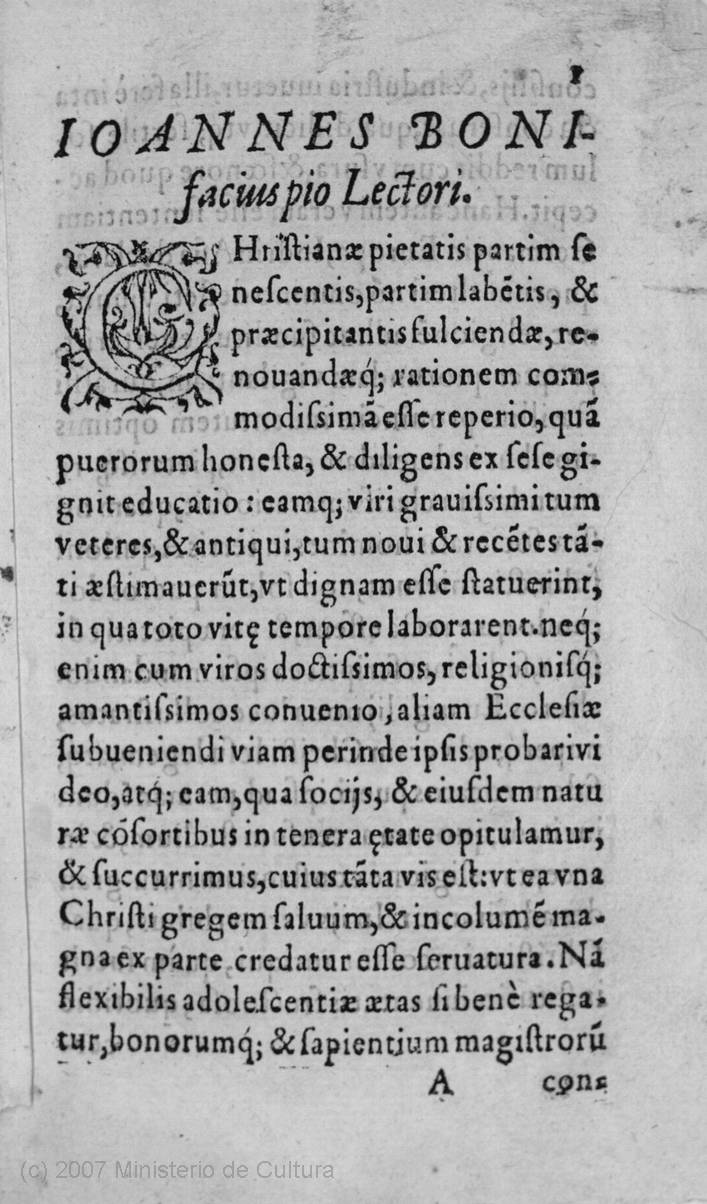 1
IOANNES BONI-
facius pio Lectori.
CHristianæ pietatis partim se
nescentis, partim labẽtis, &
præcipitantis fulciendæ, re-
nouandæq́; rationem com-
modissimã esse reperio, quã
puerorum honesta, & diligens ex sese gi-
gnit educatio: eamq; viri grauissimi tum
veteres, & antiqui, tum noui & recẽtes tã-
ti æstimauerũt, vt dignam esse statuerint,
in qua toto vitę tempore laborarent. neq́;
enim cum viros doctissimos, religionisq́;
amantissimos conuenio, aliam Ecclesiæ
subueniendi viam perinde ipsis probari vi
deo, atq́; eam, qua socijs, & eiusdem natu
ræ cõsortibus in tenera ętate opitulamur,
& succurrimus, cuius tãta vis est: vt ea vna
Christi gregem saluum, & incolumẽ ma-
gna ex parte credatur esse seruatura. Nã
flexibilis adolescentiæ ætas si benè rega-
tur, bonorumq́; & sapientium magistrorũ
A cons
(c) 2007 Ministerio de Cultura